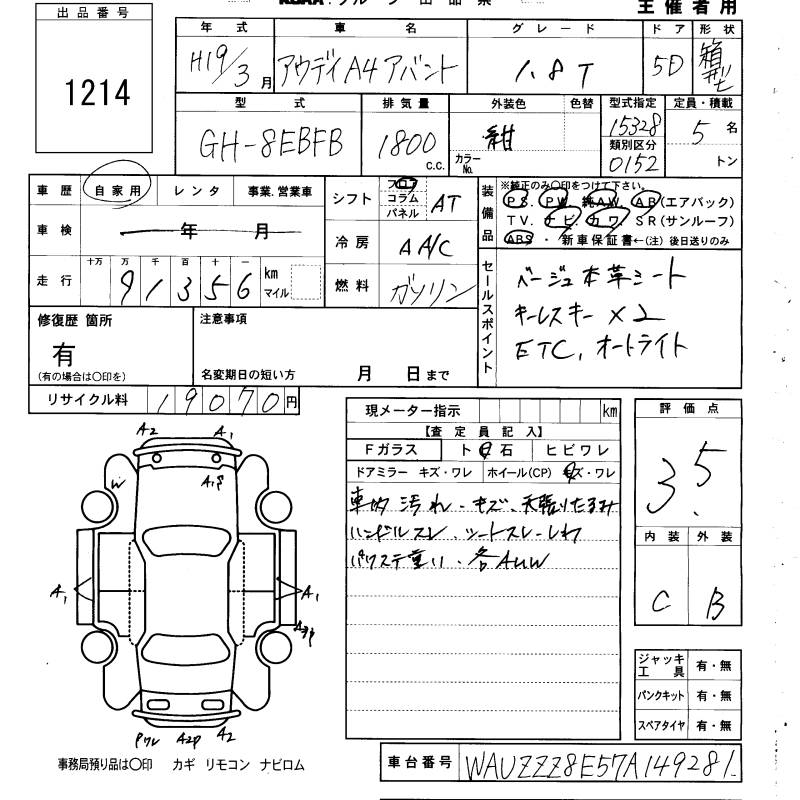 出品番号
1214
主催者用
年式 車名 グレード ドア 形状
H19/3月 アウディA4アバント 1.8T 5D 箱型
型式 排気量 外装色 色替 型式指定 定員・積載
GH-8EBFB 1800 c.c. 紺 カラーNo. 15328 5名
類別区分
0152 トン
車歴 自家用 レンタ 事業.営業車
車検 年 月
走行 十万 万 千 百 十 一
91356 km マイル
シフト フロア コラム パネル AT
冷房 AA/C
燃料 ガソリン
装備品
※純正のみ〇印をつけて下さい。
PS. PW. 純AW. AB(エアバック)
TV. ナビ. カワ. SR(サンルーフ)
ABS ・ 新車保証書←(注) 後日送りのみ
セールスポイント
ベージュ本革シート
キーレスキー×2
ETC, オートライト
修復歴 箇所
有
(有の場合は〇印を)
注意事項
名変期日の短い方 月 日まで
リサイクル料 19070円
現メーター指示 km
【査定員記入】
Fガラス ト 石 ヒビワレ
ドアミラー キズ・ワレ ホイール(CP) キズ・ワレ
車内汚れ・キズ、天張りたるみ
ハンドルスレ、シートスレ・しわ
パワステ重い、各AUW
評価点
3.5
内装 外装
C B
ジャッキ工具 有・無
パンクキット 有・無
スペアタイヤ 有・無
A2 A1
W
A1 A1
A2P A2
事務局預り品は〇印 カギ リモコン ナビロム
車台番号 WAUZZZ8E57A149281